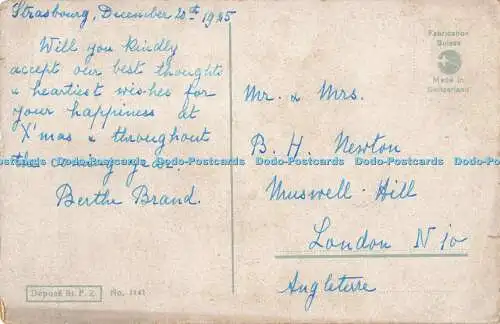 Strasbourg, December 20th 1945
Will you kindly
accept our best thoughts
& heartiest wishes for
your happiness at
X'mas & throughout
the coming year.
Berthe Brand.
Fabrication
Suisse
Made in
Switzerland
Mr. & Mrs.
B. H. Newton
Muswell Hill
London N 10
Angleterre
Dodo-Postcards Dodo-Postcards Dodo-Postcards Dodo-Postcards Dodo-Postcards Dodo-Postcards
Déposé St. P. Z. No. 1141